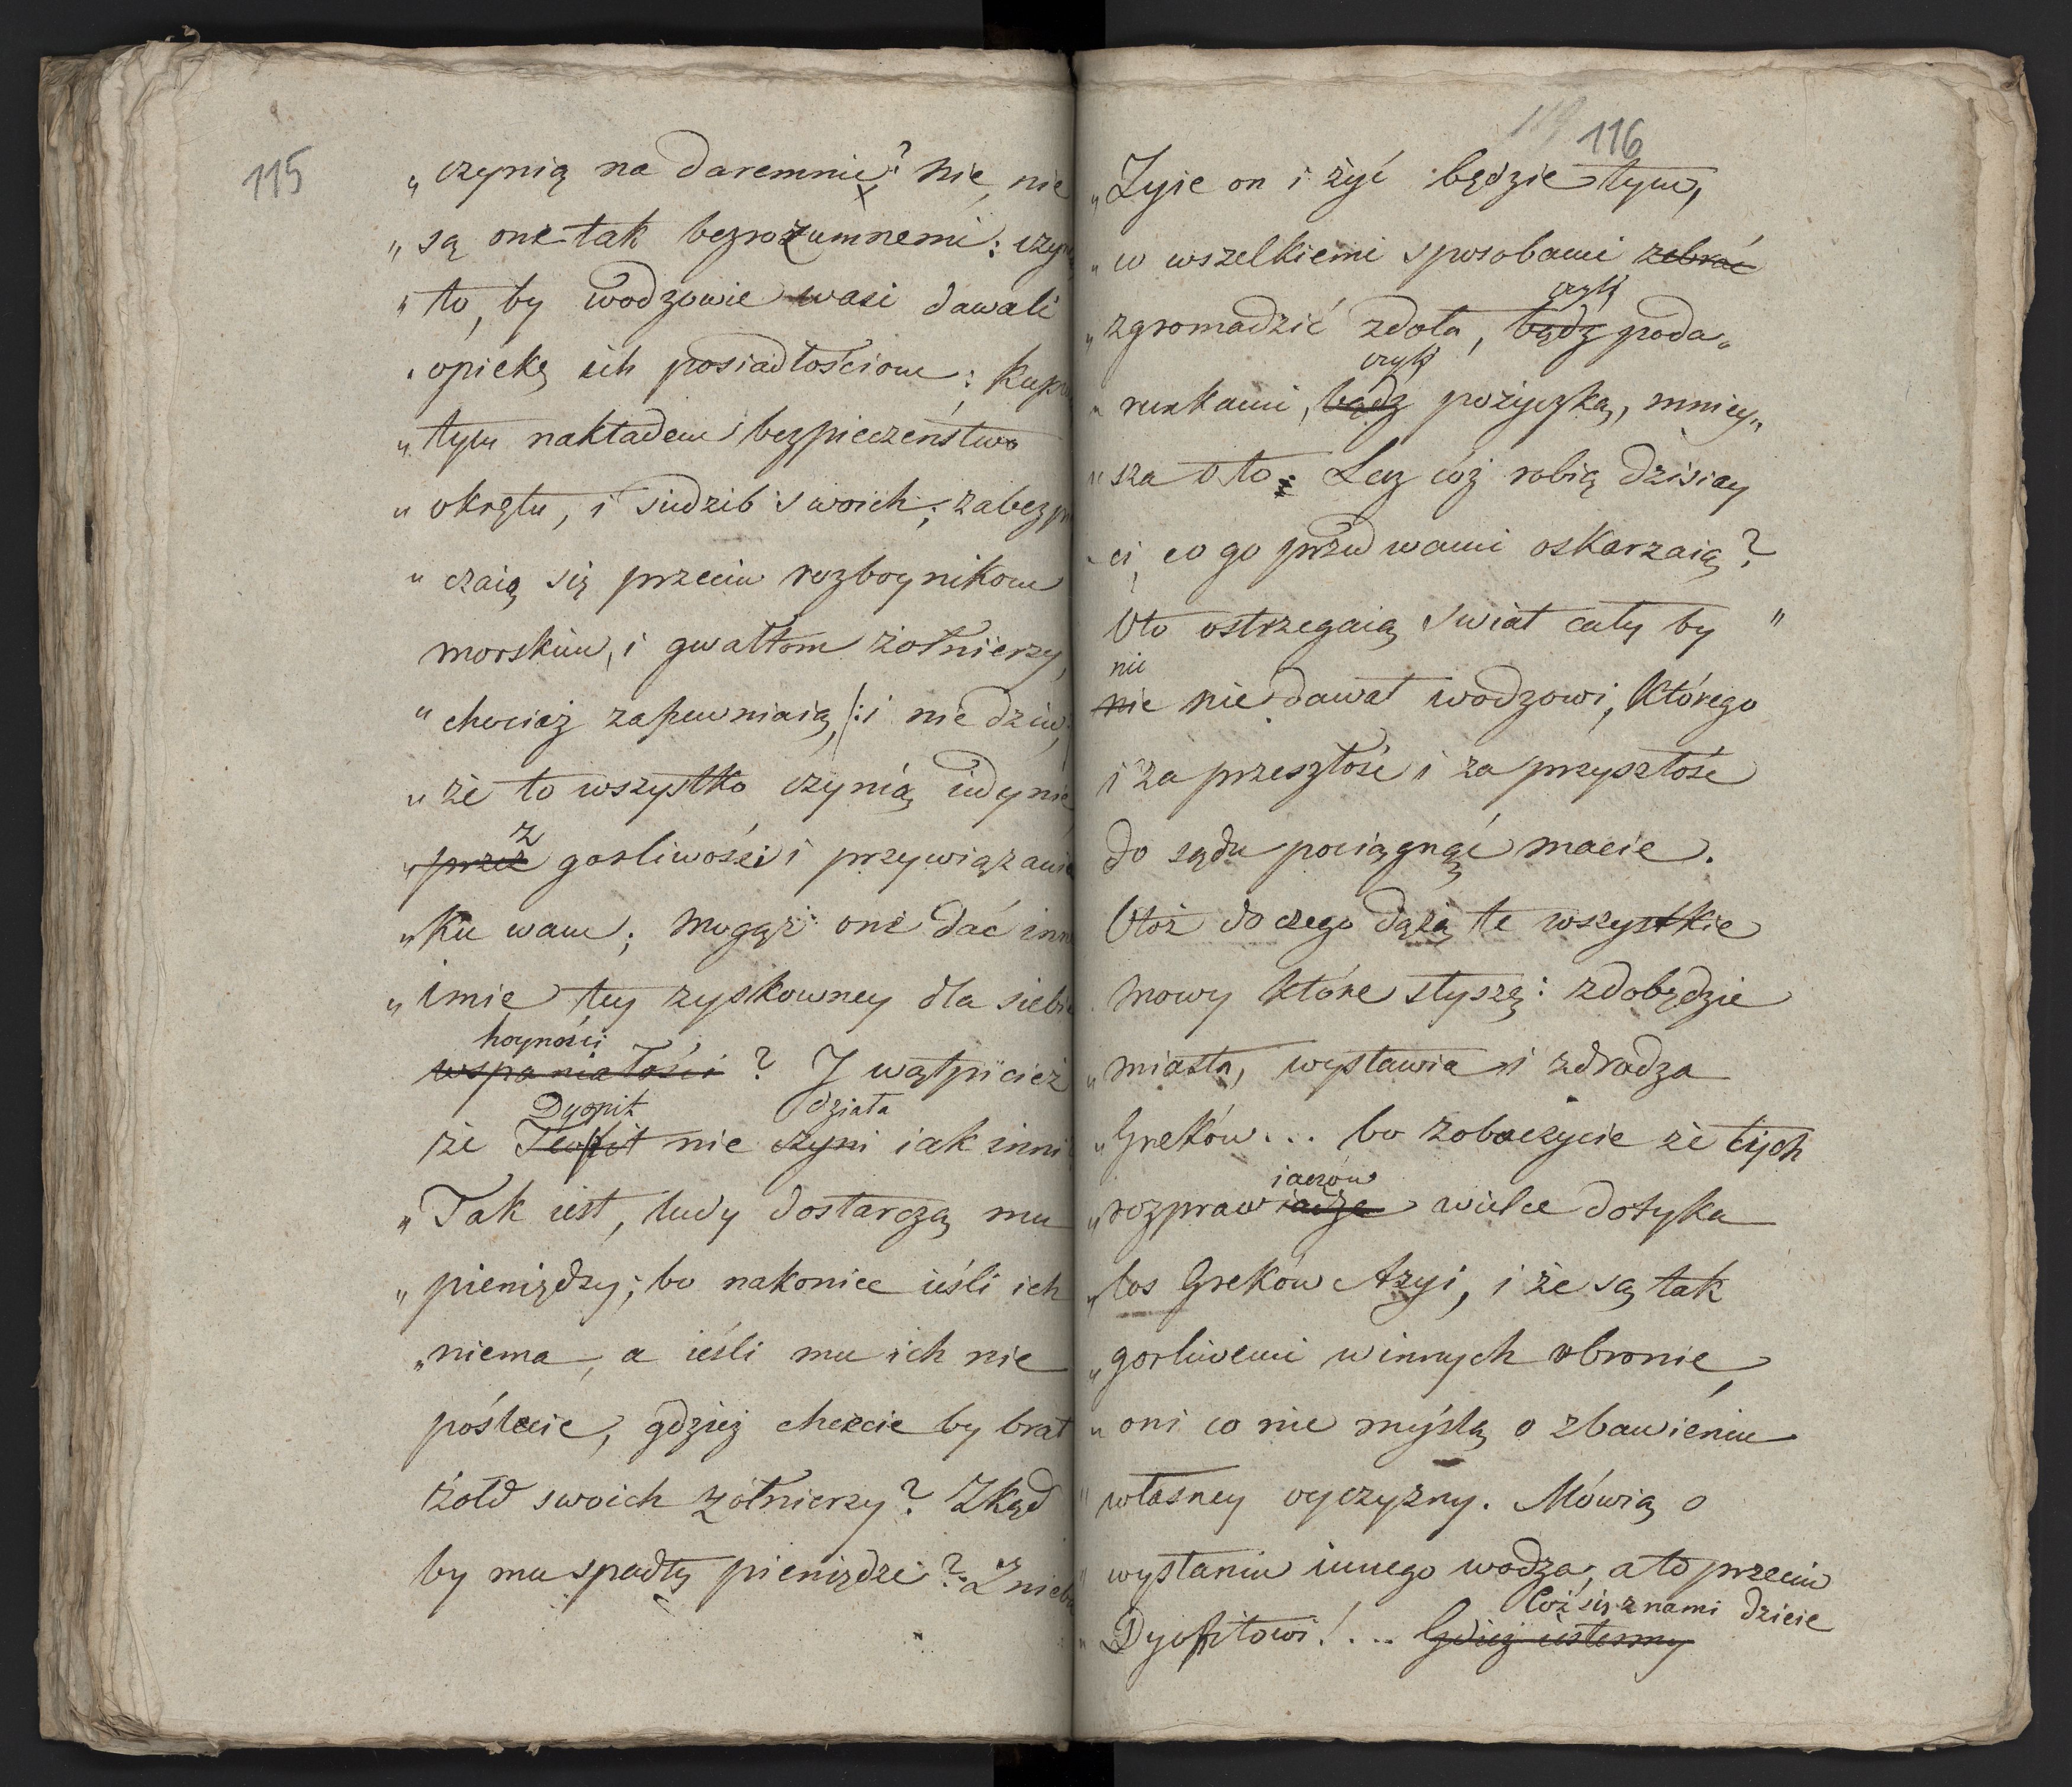 115
„ czynią na daremnie? Nie, nie
„ są one tak bezrozumnemi: czy
„ to, by wodzowie wasi dawali
„ opiekę ich posiadłościom; Kup
„ tym nakładem bezpieczeństwo
„ okrętu, i siedzib swoich; zabezp
„ czaią się przeciw rozboynikom
morskim, i gwałtom żołnierzy,
„ chociaż zapewniaią, /:i nie dziw:/
„ że to wszystko czynią iedynie
z
„ przez gorliwości i przywiązanie
„ Ku wam; Mogąż one dać inn
„ imie tey zyskowney dla siebie
hoyności
wspaniałości ? I wątpicież
Dyopit działa
że Teofit nie czyni iak inni
„ Tak iest, ludy dostarczą mu
„ pieniędzy; bo nakoniec ieśli ich
„ niema, a ieśli mu ich nie
poślecie, gdzież chcecie by brał
żołd swoich żołnierzy? Zkąd
by mu spadły pieniądze? Z nieba
116
„ Żyie on i żyć będzie tym,
„ co wszelkiemi sposobami zebrać
czyli
„ zgromadzić zdoła, bądź poda„
czyli
„ runkami, bądź pożyczką, mniey„
„ sza o to; Lecz cóż robią dzisiay
„ ci, co go przed wami oskarzaią?
Oto ostrzegaią świat cały by „
nic
nie nie dawał wodzowi, Którego
i za przeszłość i za przyszłość
do sądu pociągnąć macie.
Otoż do czego dążą te wszystkie
mowy które słyszę: zdobędzie
„ miasta, wystawia i zdradza
„ Greków... bo zobaczycie że tych
iaczów
„ rozprawiadze wielce dotyka
„ los Greków Azyi, i że są tak
„ gorliwemi w innych obronie,
„ oni co nie myślą o zbawieniu
„ własney oyczyzny. Mówią o
„ wysłaniu innego wodza, a to przeciw
Cóż się z nami dzieie
„ Dyofitowi!... Gdzież iestesmy